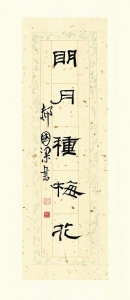 明月種梅花
郝國梁書